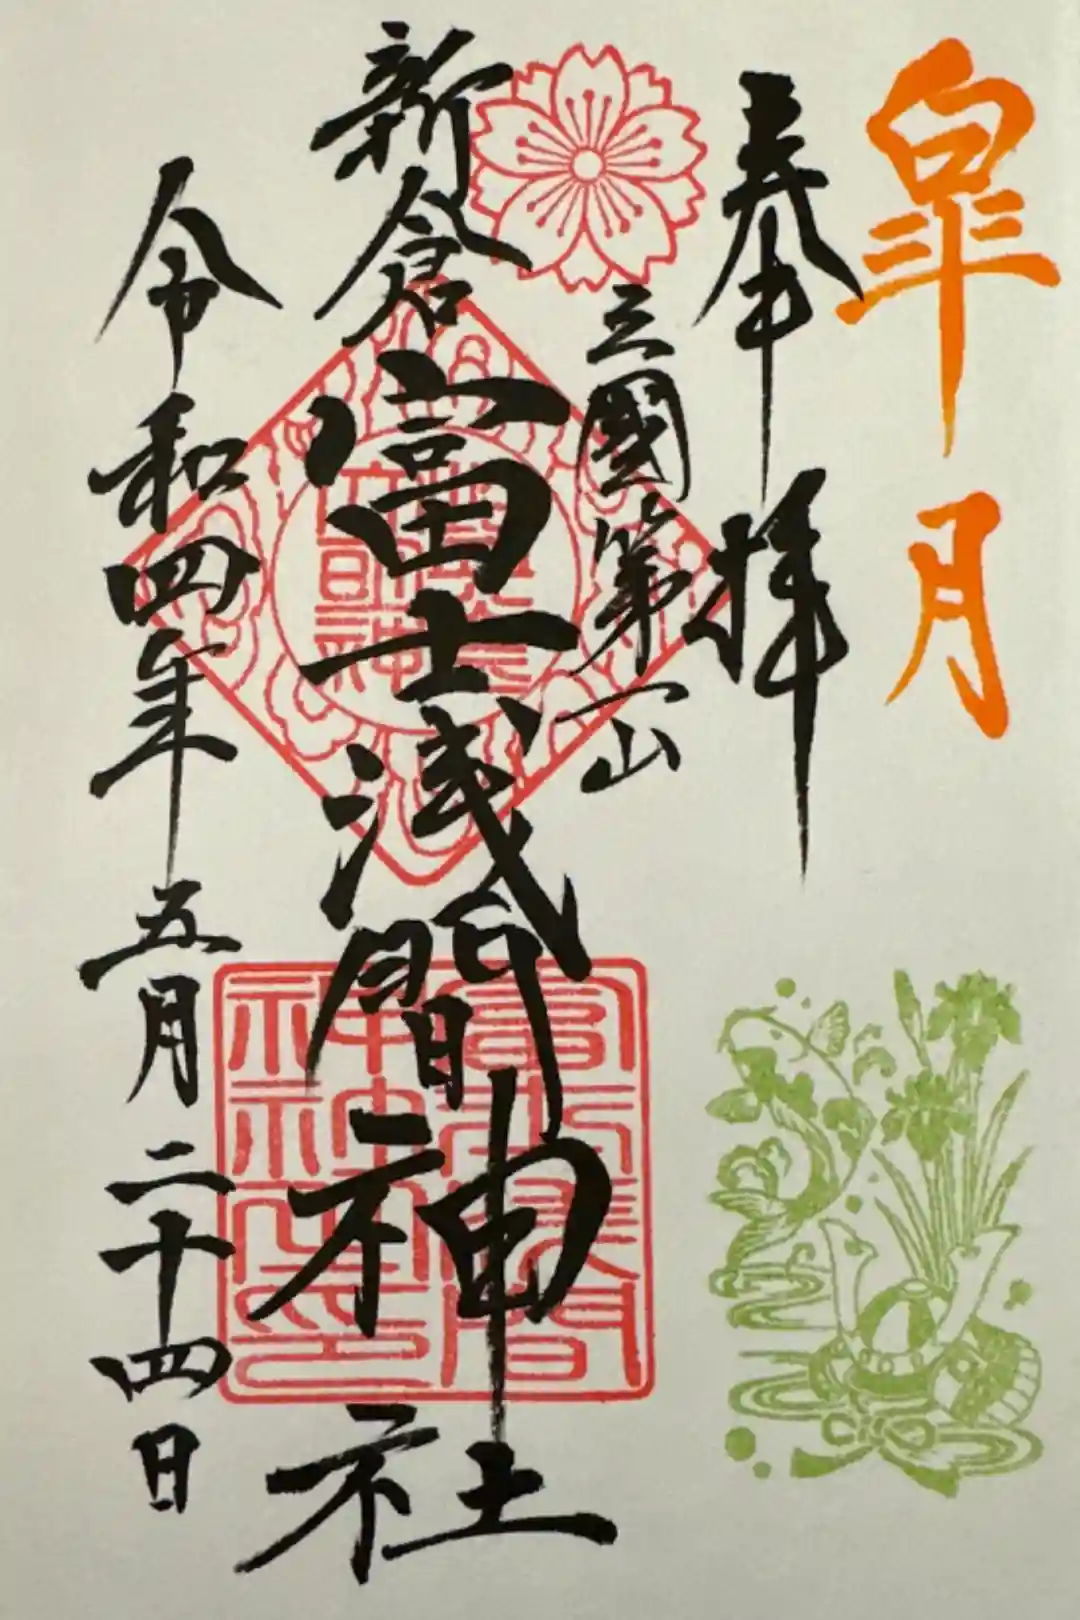 皐月
奉拝
三國第一山
新倉富士浅間神社
令和四年五月二十四日